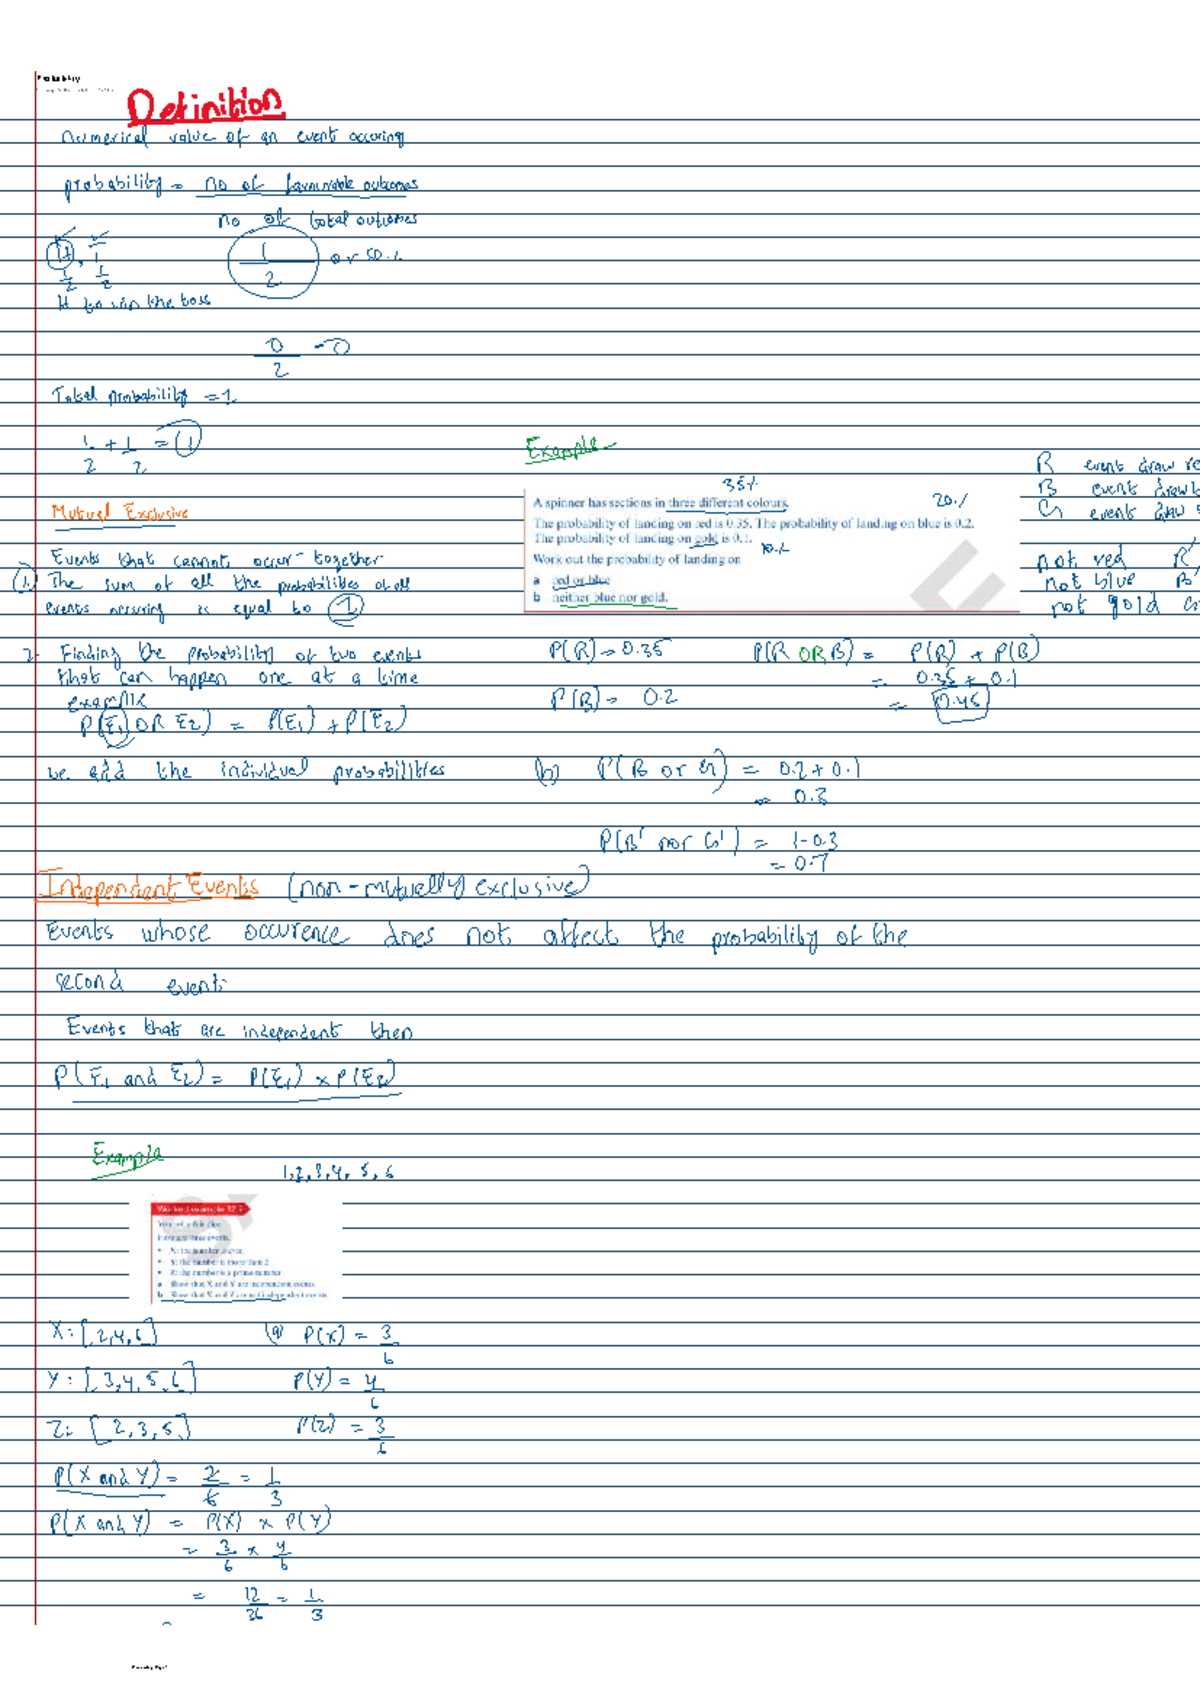 Probability
Definition
Numerical value of an event occuring
probability = no of favourable outcomes
no of total outcomes
H,
1/2 1/2
1/2 or 50%
H to win the toss
0/2 = 0
Total probability = 1
1/2 + 1/2 = 1
Mutual Exclusive
Events that cannot occur together
1. The sum of all the probabilities of all
events occuring is equal to 1
2. Finding the probability of two events
that can happen one at a time
example
P(E1 OR E2) = P(E1) + P(E2)
we add the individual probabilities
Example
35%
A spinner has sections in three different colours.
20%
The probability of landing on red is 0.35. The probability of landing on blue is 0.2.
The probability of landing on gold is 0.1.
10%
Work out the probability of landing on
a red or blue
b neither blue nor gold.
R event draw re
B event draw b
G event draw
not red R'
not blue B'
not gold G
P(R) = 0.35
P(B) = 0.2
P(R OR B) = P(R) + P(B)
= 0.35 + 0.1
= 0.45
(b) P(B or G) = 0.2 + 0.1
= 0.3
P(B' nor G') = 1-0.3
= 0.7
Independent Events (non-mutually exclusive)
Events whose occurence does not affect the probability of the
second event
Events that are independent then
P(E1 and E2) = P(E1) x P(E2)
Example
1,2,3,4,5,6
Worked example 12.2
You roll a fair dice.
Here are three events.
• X: the number is even
• Y: the number is more than 2
• Z: the number is a prime number
a Show that X and Y are independent events
b Show that X and Z are not independent events
X: [2,4,6]
Y: [3,4,5,6]
Z: [2,3,5]
(a) P(X) = 3/6
P(Y) = 4/6
P(Z) = 3/6
P(X and Y) = 2/6 = 1/3
P(X and Y) = P(X) x P(Y)
= 3/6 x 4/6
= 12/36 = 1/3